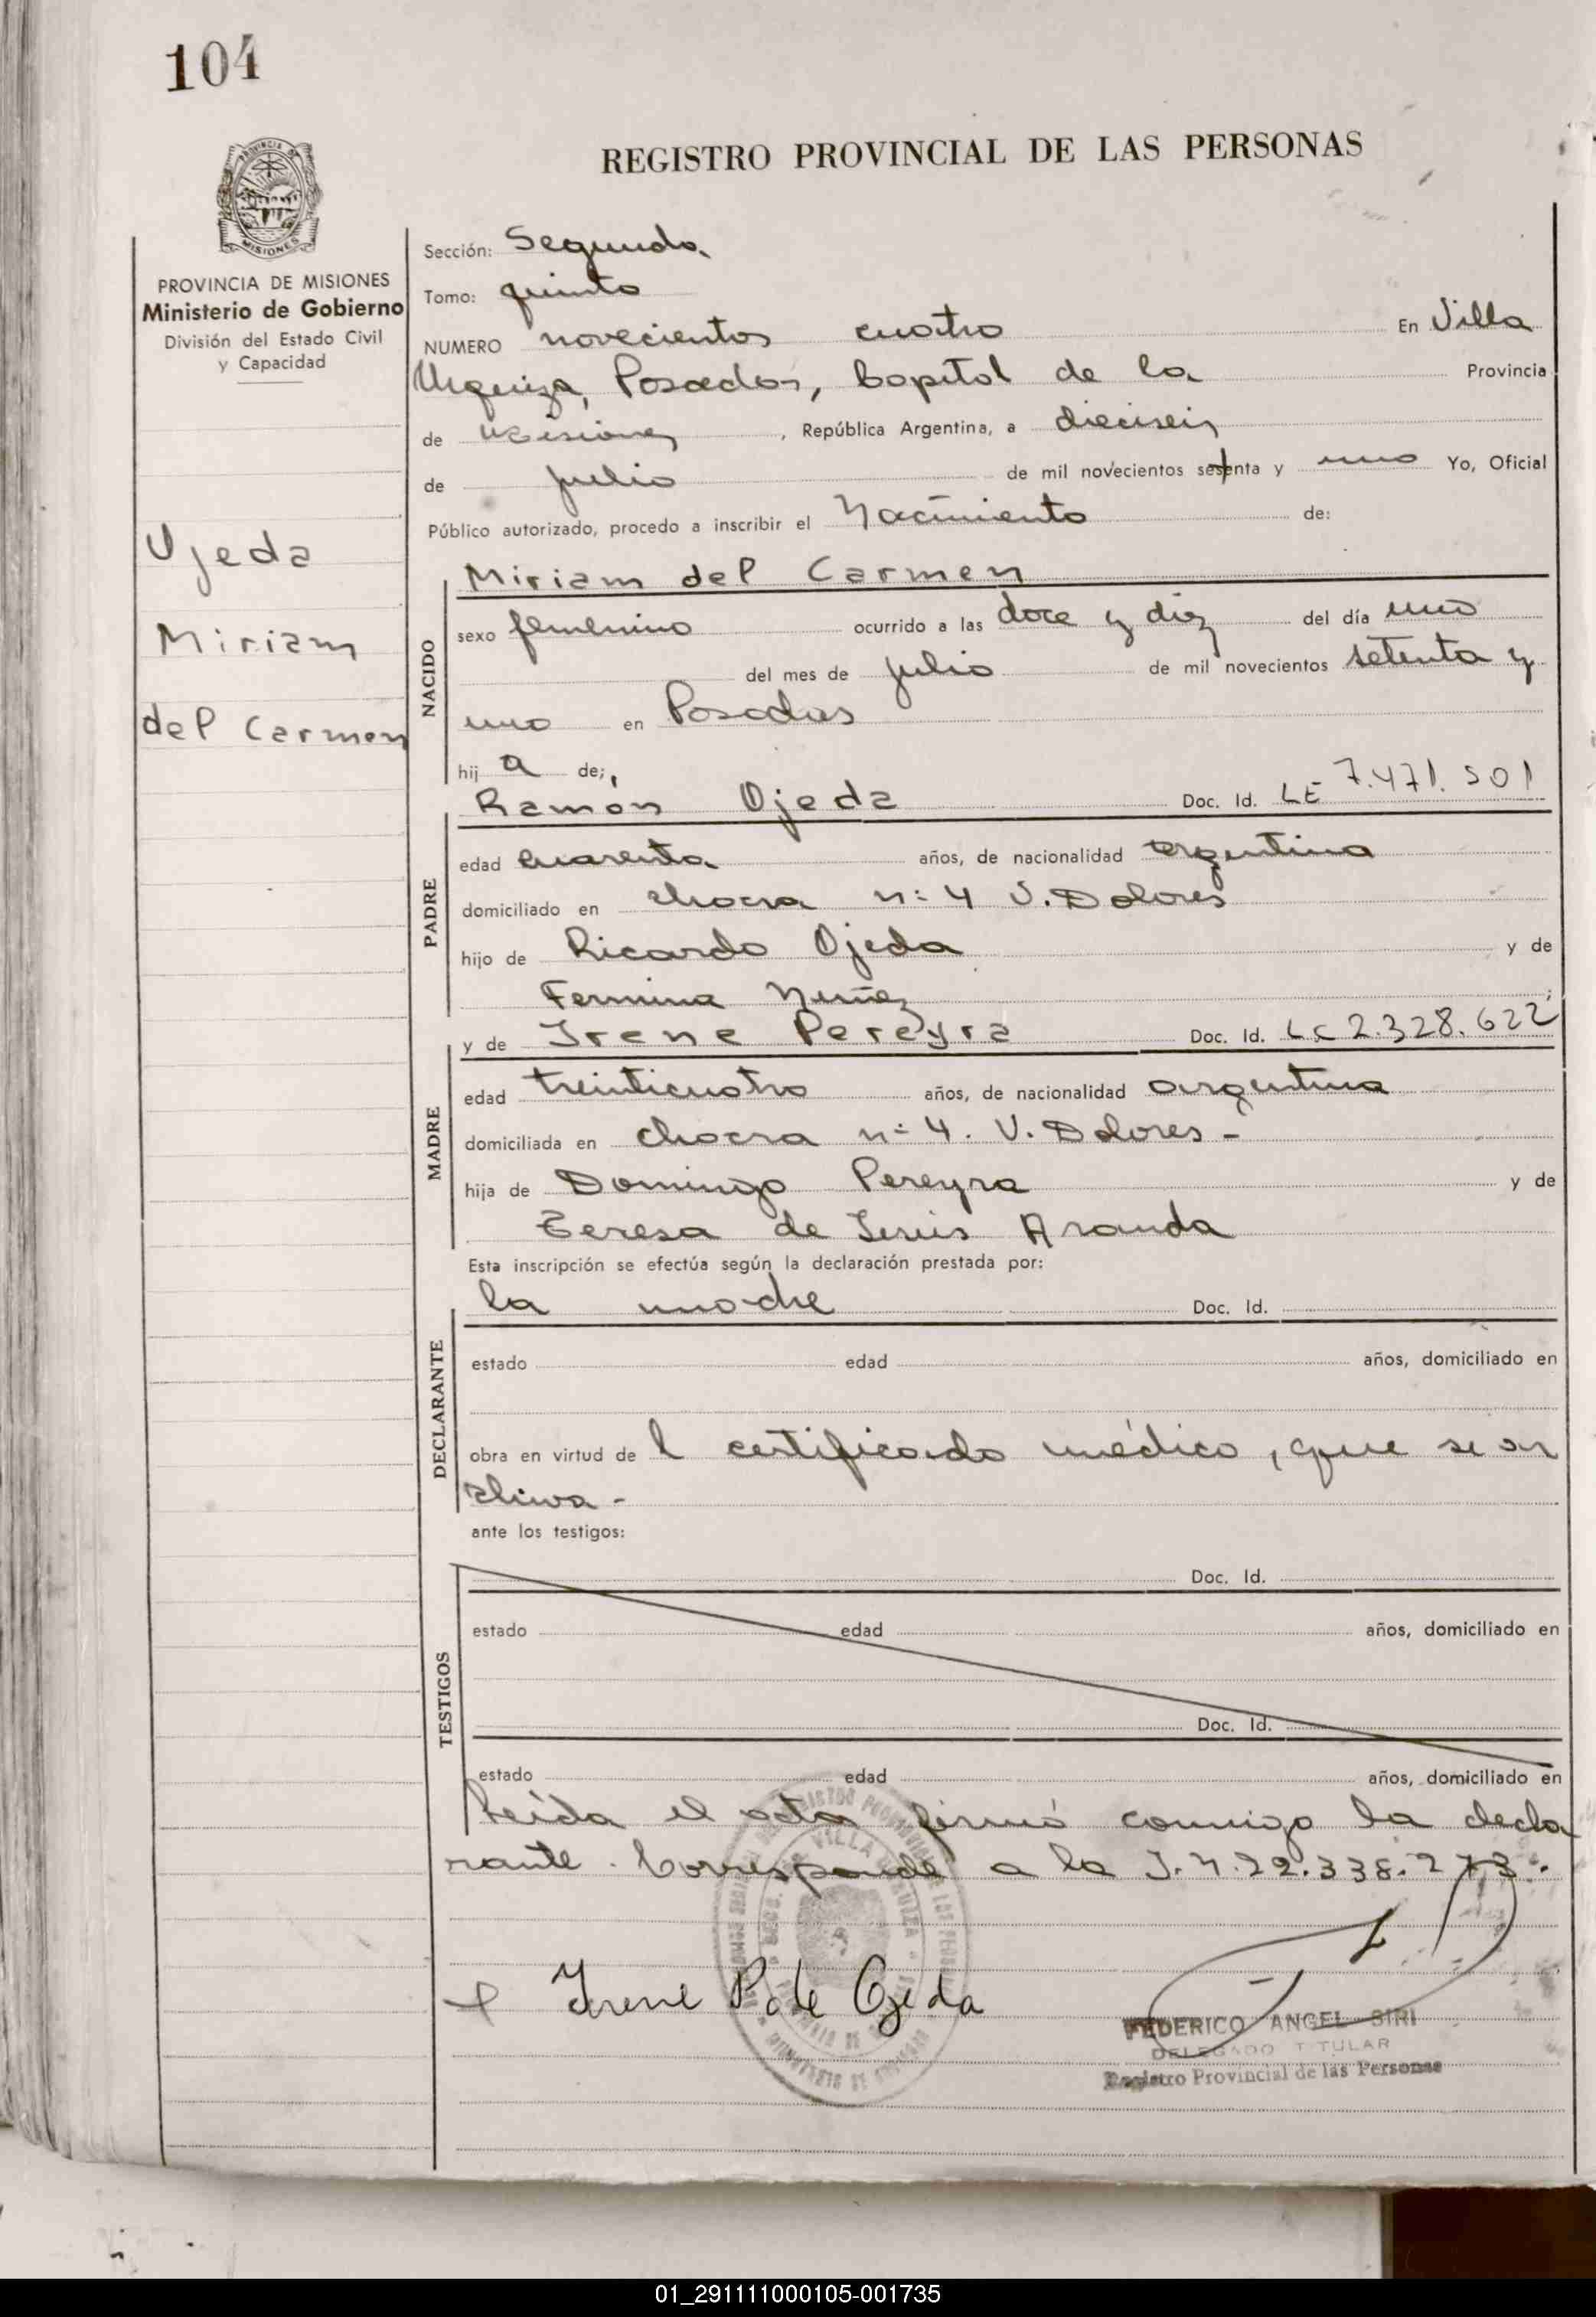 104
REGISTRO PROVINCIAL DE LAS PERSONAS
PROVINCIA DE
MISIONES
PROVINCIA DE MISIONES
Ministerio de Gobierno
División del Estado Civil
y Capacidad
Ojeda
Miriam
del Carmen
Sección: Segunda
Tomo: quinto
NUMERO novecientos cuatro En Villa
Urquiza, Posadas, Capital de la Provincia
de Misiones, República Argentina, a dieciseis
de julio de mil novecientos setenta y uno Yo, Oficial
Público autorizado, procedo a inscribir el Nacimiento de:
Miriam del Carmen
NACIDO
sexo femenino ocurrido a las doce y diez del día uno
del mes de julio de mil novecientos setenta y
uno en Posadas
hij a de;
Ramón Ojeda Doc. Id. LE 7.471.501
PADRE
edad cuarenta años, de nacionalidad argentina
domiciliado en chacra n: 4 V. Dolores
hijo de Ricardo Ojeda y de
Fermina Nuñez
y de Irene Pereyra Doc. Id. LC 2.328.622
MADRE
edad treinticuatro años, de nacionalidad argentina
domiciliada en chacra n: 4. V. Dolores -
hija de Domingo Pereyra y de
Teresa de Jesús Aranda
Esta inscripción se efectúa según la declaración prestada por:
la madre Doc. Id.
DECLARANTE
estado edad años, domiciliado en
obra en virtud de l certificado médico, que se ar
chiva -
ante los testigos:
Doc. Id.
TESTIGOS
estado edad años, domiciliado en
Doc. Id.
estado edad años, domiciliado en
Leída el acta firmó conmigo la decla
rante. Corresponde a la I.N. 22.338.273.
Irene P de Ojeda
FEDERICO ANGEL SIRI
DELEGADO TITULAR
Registro Provincial de las Personas
01_291111000105-001735